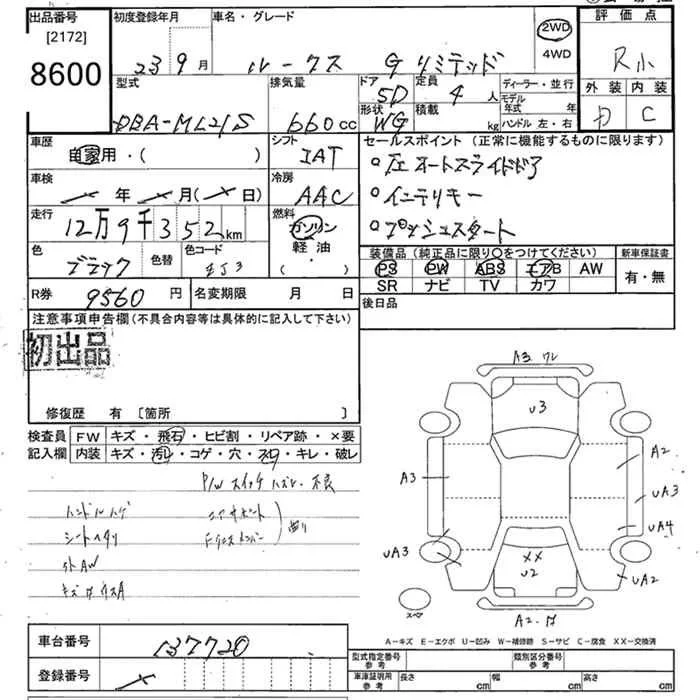 出品番号 初度登録年月 車名・グレード 2WD 4WD 評価点
[2172]
8600
23 9月 ルークス Gリミテッド R小
型式 排気量 ドア 定員 ディーラー・並行 外装 内装
5D 4人 モデル年式 年
DBA-ML21S 660cc 形状 積載 ハンドル 左・右 C
WG kg
車歴 シフト セールスポイント (正常に機能するものに限ります)
自家用・( ) IAT
左オートスライドドア
車検 冷房
年 月( 日) AAC
インテリキー
走行 燃料
12万9千352km ガソリン
プッシュスタート
色 色替 色コード 軽油
ブラック ZJ3 ( )
装備品 (純正品に限り○をつけてください) 新車保証書
PS PW ABS エアB AW 有・無
SR ナビ TV カワ
R券 9560円 名変期限 月 日
後日品
注意事項申告欄(不具合内容等は具体的に記入して下さい)
初出品
修復歴 有 [箇所 ]
検査員 FW キズ・飛石・ヒビ割・リペア跡・×要
記入欄 内装 キズ・汚レ・コゲ・穴・スレ・キレ・破レ
P/W スイッチ ハズレ・不良
ハンドルハゲ コアサポート
シートヘタリ 曲り
社外AW
A3 ワレ
U3
A2
A3
UA3
UA4
UA3
XX
U2
UA2
スペア
A2
A-キズ E-エクボ U-凹み W-補修跡 S-サビ C-腐食 XX-交換済
車台番号 137720
登録番号
型式指定番号 参考 類別区分番号 参考
車庫証明用 参考 長さ cm 幅 cm 高さ cm